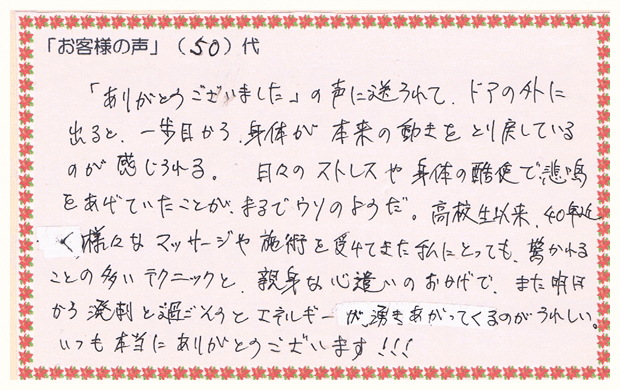 「お客様の声」（50）代
「ありがとうございました」の声に送られて、ドアの外に
出ると、一歩目から、身体が本来の動きをとり戻している
のが感じられる。日々のストレスや身体の酷使で悲鳴
をあげていたことが、まるでウソのようだ。高校生以来、40年近
く様々なマッサージや施術を受けてきた私にとっても、驚かれる
ことの多いテクニックと、親身な心遣いのおかげで、また明日
から溌剌と過ごそうとエネルギーが湧きあがってくるのがうれしい。
いつも本当にありがとうございます!!!